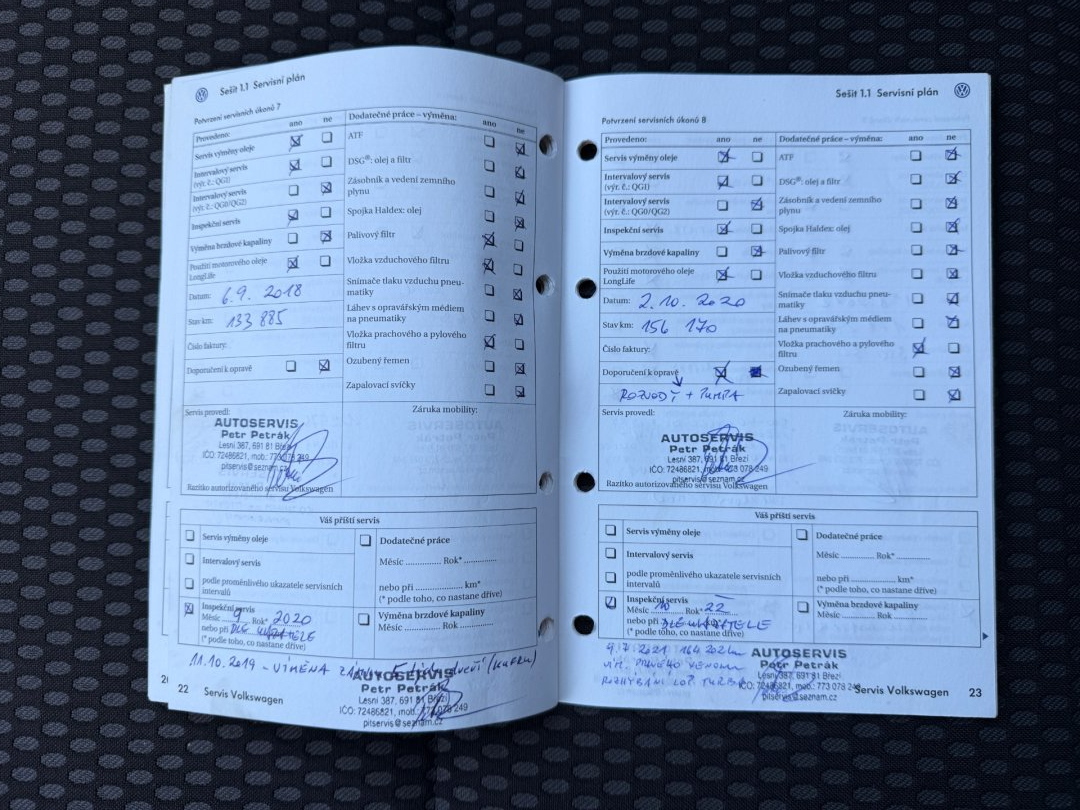 Sešit 1.1 Servisní plán
Potvrzení servisních úkonů 7
Provedeno: ano ne
Servis výměny oleje
Intervalový servis
(výr. č.: QG1)
Intervalový servis
(výr. č.: QG0/QG2)
Inspekční servis
Výměna brzdové kapaliny
Použití motorového oleje
LongLife
Datum: 6.9. 2018
Stav km: 133 885
Číslo faktury:
Doporučení k opravě
Dodatečné práce – výměna: ano ne
ATF
DSG®: olej a filtr
Zásobník a vedení zemního
plynu
Spojka Haldex: olej
Palivový filtr
Vložka vzduchového filtru
Snímače tlaku vzduchu pneu-
matiky
Láhev s opravářským médiem
na pneumatiky
Vložka prachového a pylového
filtru
Ozubený řemen
Zapalovací svíčky
Servis provedl:
AUTOSERVIS
Petr Petrák
Lesní 387, 691 81 Březí
IČO: 72486821, mob.: 773 078 249
pitservis@seznam.cz
Razítko autorizovaného servisu Volkswagen
Záruka mobility:
Váš příští servis
Servis výměny oleje
Intervalový servis
podle proměnlivého ukazatele servisních
intervalů
Inspekční servis
Měsíc 9 Rok* 2020
nebo při DLE UKAZATELE
(* podle toho, co nastane dříve)
Dodatečné práce
Měsíc ............ Rok*............
nebo při ................ km*
(* podle toho, co nastane dříve)
Výměna brzdové kapaliny
Měsíc ............ Rok ............
11.10.2019 – VÝMĚNA
AUTOSERVIS
Petr Petrák
Lesní 387, 691 81 Březí
IČO: 72486821, mob.: 773 078 249
pitservis@seznam.cz
22 Servis Volkswagen
Sešit 1.1 Servisní plán
Potvrzení servisních úkonů 8
Provedeno: ano ne
Servis výměny oleje
Intervalový servis
(výr. č.: QG1)
Intervalový servis
(výr. č.: QG0/QG2)
Inspekční servis
Výměna brzdové kapaliny
Použití motorového oleje
LongLife
Datum: 2.10. 2020
Stav km: 156 170
Číslo faktury:
Doporučení k opravě
ROZVODY + PUMPA
Dodatečné práce – výměna: ano ne
ATF
DSG®: olej a filtr
Zásobník a vedení zemního
plynu
Spojka Haldex: olej
Palivový filtr
Vložka vzduchového filtru
Snímače tlaku vzduchu pneu-
matiky
Láhev s opravářským médiem
na pneumatiky
Vložka prachového a pylového
filtru
Ozubený řemen
Zapalovací svíčky
Servis provedl:
AUTOSERVIS
Petr Petrák
Lesní 387, 691 81 Březí
IČO: 72486821, mob.: 773 078 249
pitservis@seznam.cz
Razítko autorizovaného servisu Volkswagen
Záruka mobility:
Váš příští servis
Servis výměny oleje
Intervalový servis
podle proměnlivého ukazatele servisních
intervalů
Inspekční servis
Měsíc 10 Rok 22
nebo při DLE UKAZATELE
(* podle toho, co nastane dříve)
Dodatečné práce
Měsíc ............ Rok*............
nebo při ................ km*
(* podle toho, co nastane dříve)
Výměna brzdové kapaliny
Měsíc ............ Rok ............
9.7.2021
VÝM. PRAVÉHO
TURBA
AUTOSERVIS
Petr Petrák
Lesní 387, 691 81 Březí
IČO: 72486821, mob.: 773 078 249
pitservis@seznam.cz
Servis Volkswagen 23